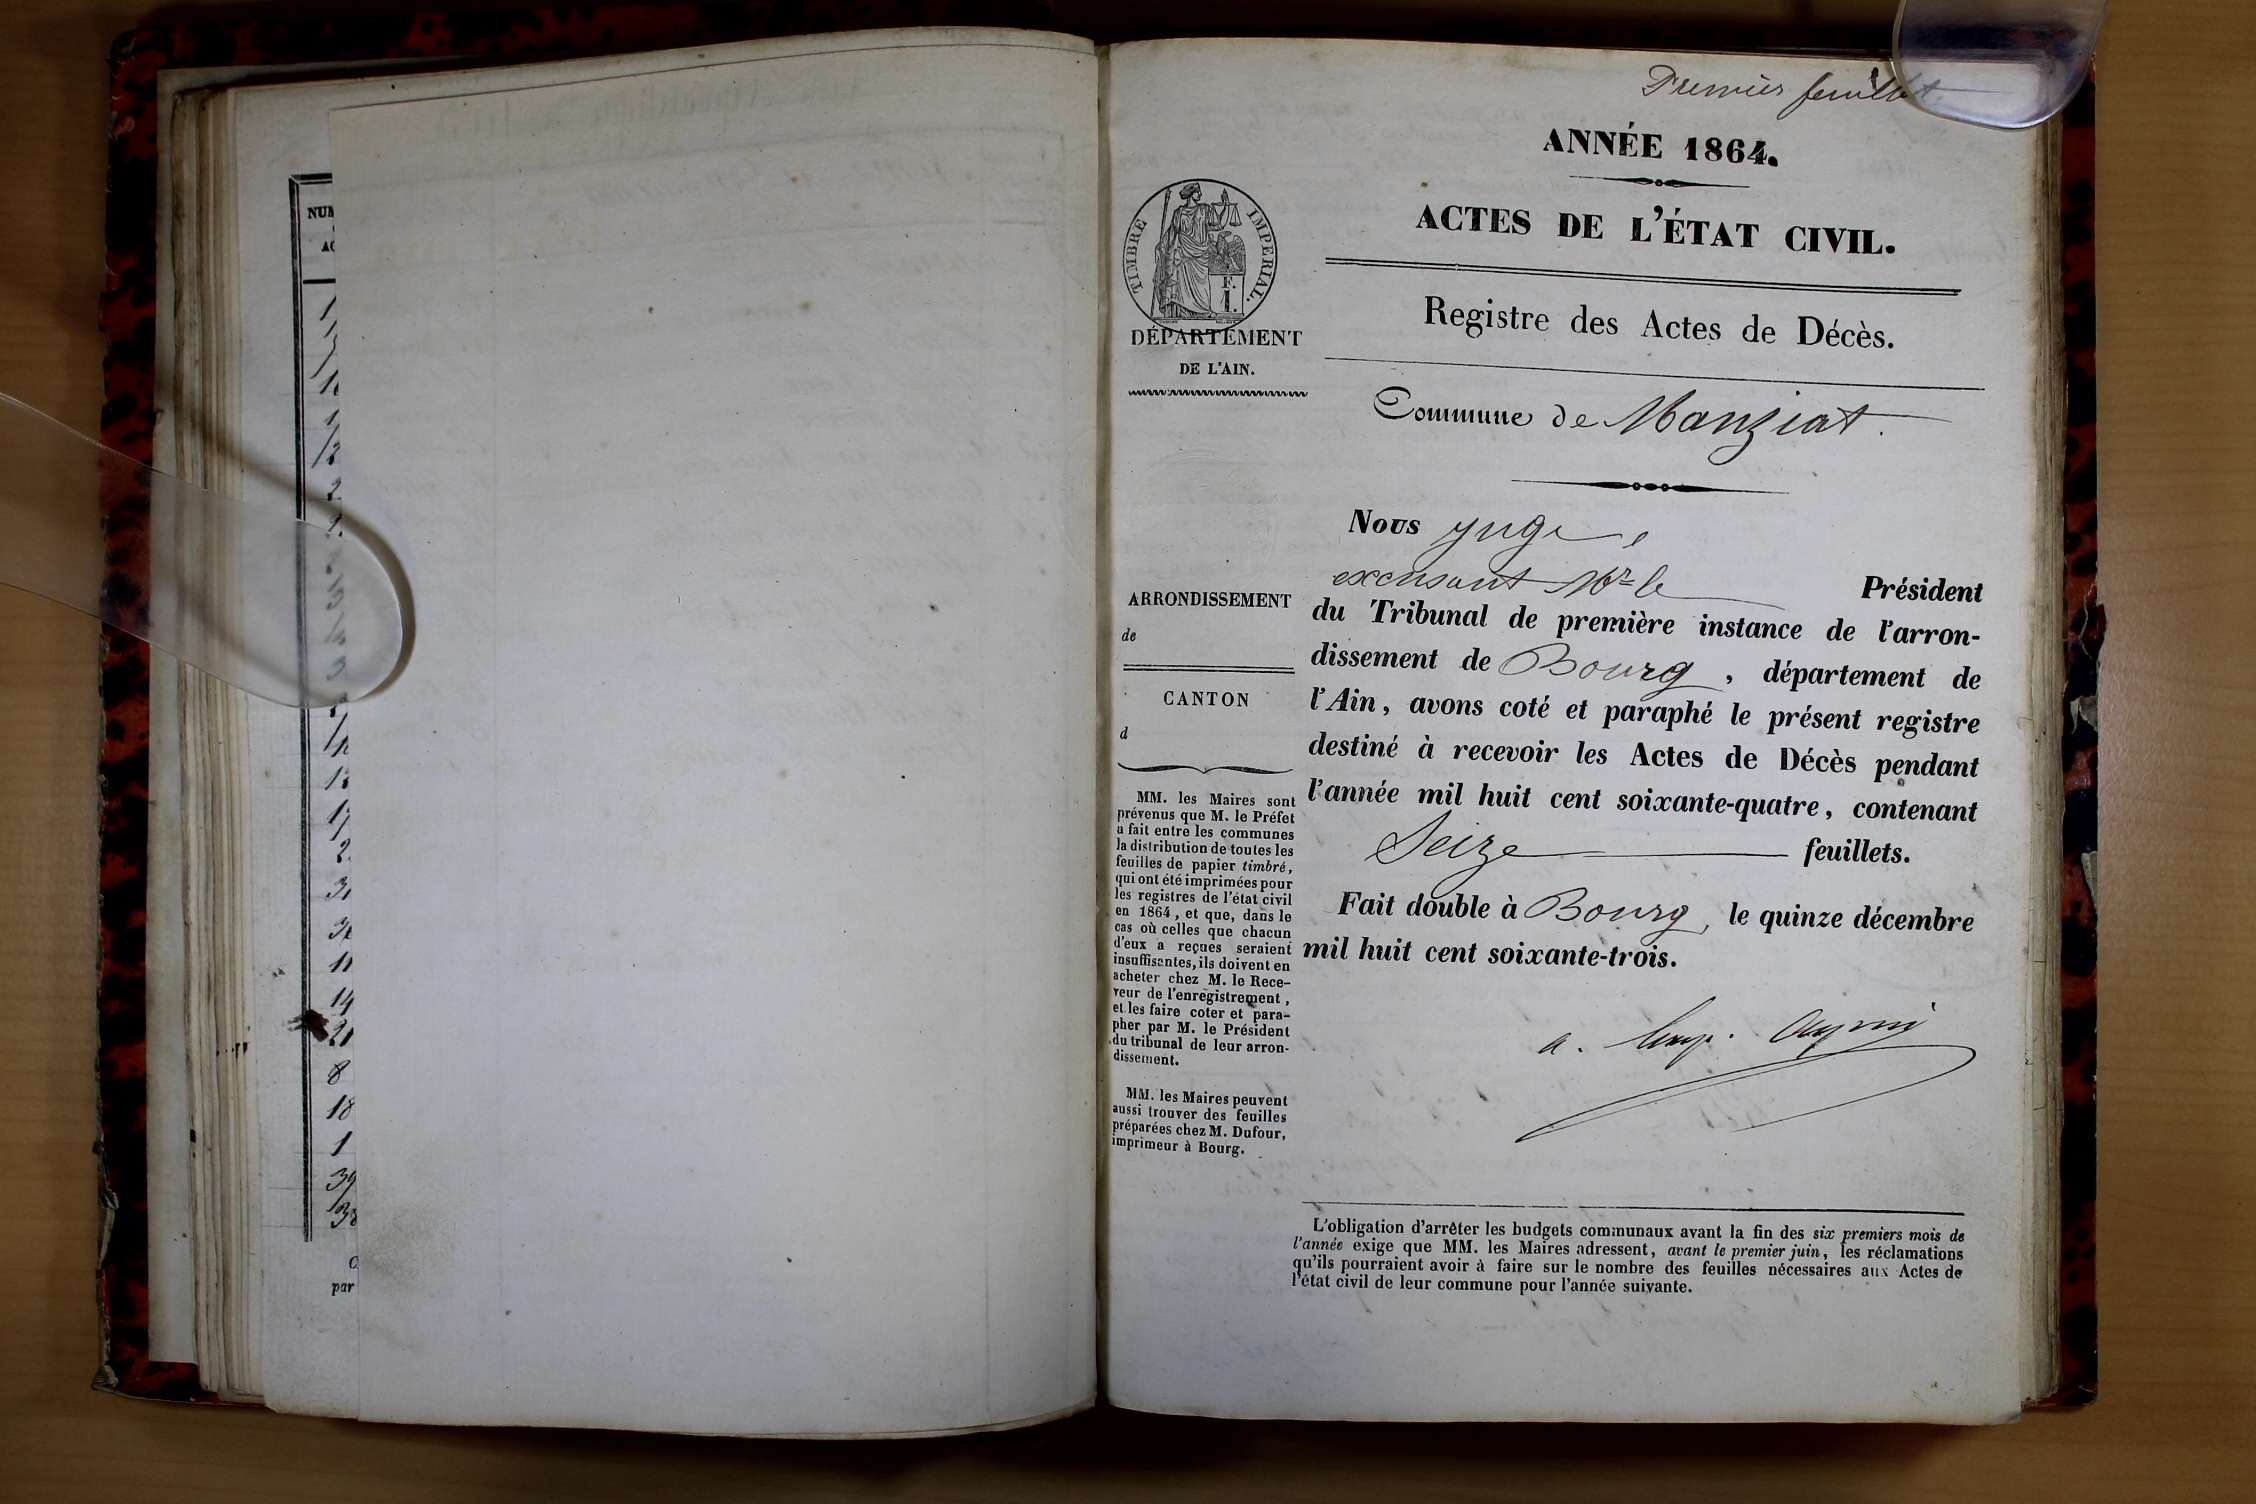 NUM
AC
14
21
8
18
1
39
38
par
Premier feuillet.
ANNÉE 1864.
ACTES DE L'ÉTAT CIVIL.
TIMBRE IMPERIAL.
F.
1.
DÉPARTEMENT
DE L'AIN.
Registre des Actes de Décès.
Commune de Manziat.
Nous juge,
excusant Mr le Président
du Tribunal de première instance de l'arron-
dissement de Bourg, département de
l'Ain, avons coté et paraphé le présent registre
destiné à recevoir les Actes de Décès pendant
l'année mil huit cent soixante-quatre, contenant
Seize feuillets.
Fait double à Bourg, le quinze décembre
mil huit cent soixante-trois.
a.
ARRONDISSEMENT
de
CANTON
d
MM. les Maires sont
prévenus que M. le Préfet
a fait entre les communes
la distribution de toutes les
feuilles de papier timbré,
qui ont été imprimées pour
les registres de l'état civil
en 1864, et que, dans le
cas où celles que chacun
d'eux a reçues seraient
insuffisantes, ils doivent en
acheter chez M. le Rece-
veur de l'enregistrement,
et les faire coter et para-
pher par M. le Président
du tribunal de leur arron-
dissement.
MM. les Maires peuvent
aussi trouver des feuilles
préparées chez M. Dufour,
imprimeur à Bourg.
L'obligation d'arrêter les budgets communaux avant la fin des six premiers mois de
l'année exige que MM. les Maires adressent, avant le premier juin, les réclamations
qu'ils pourraient avoir à faire sur le nombre des feuilles nécessaires aux Actes de
l'état civil de leur commune pour l'année suivante.